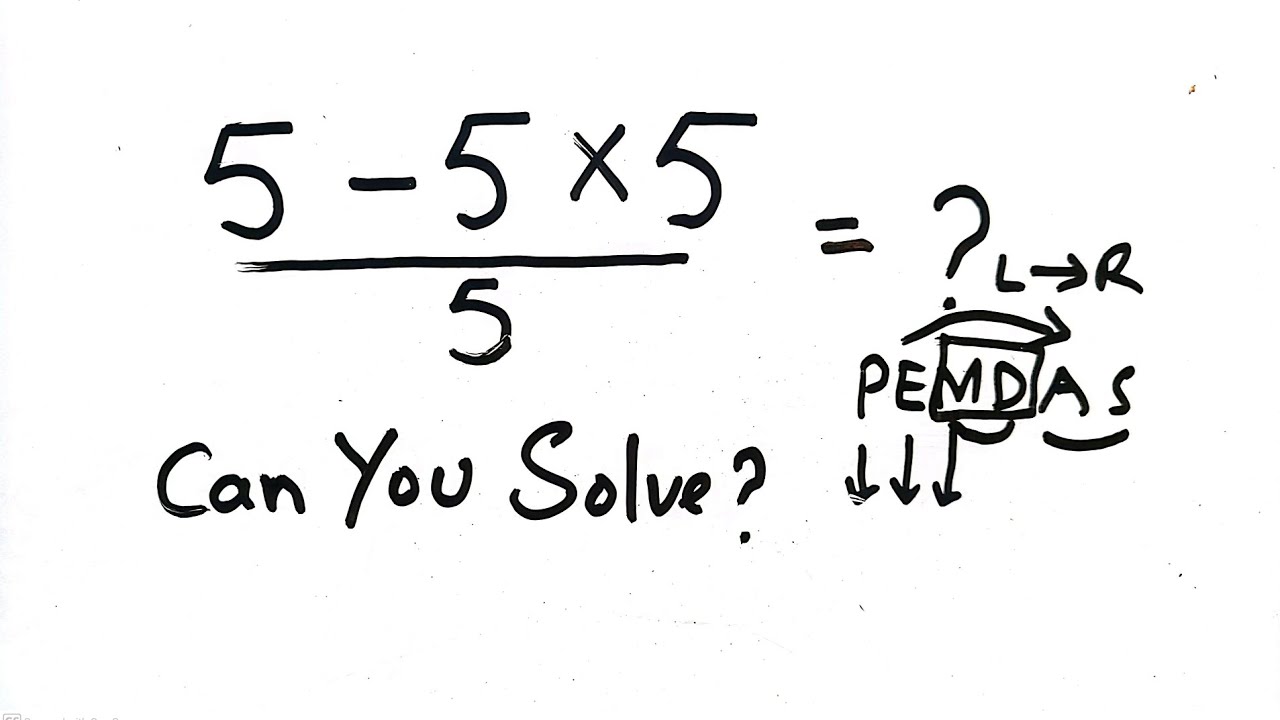 5 - 5 × 5
5
= ?
L → R
PEMDAS
Can You Solve?